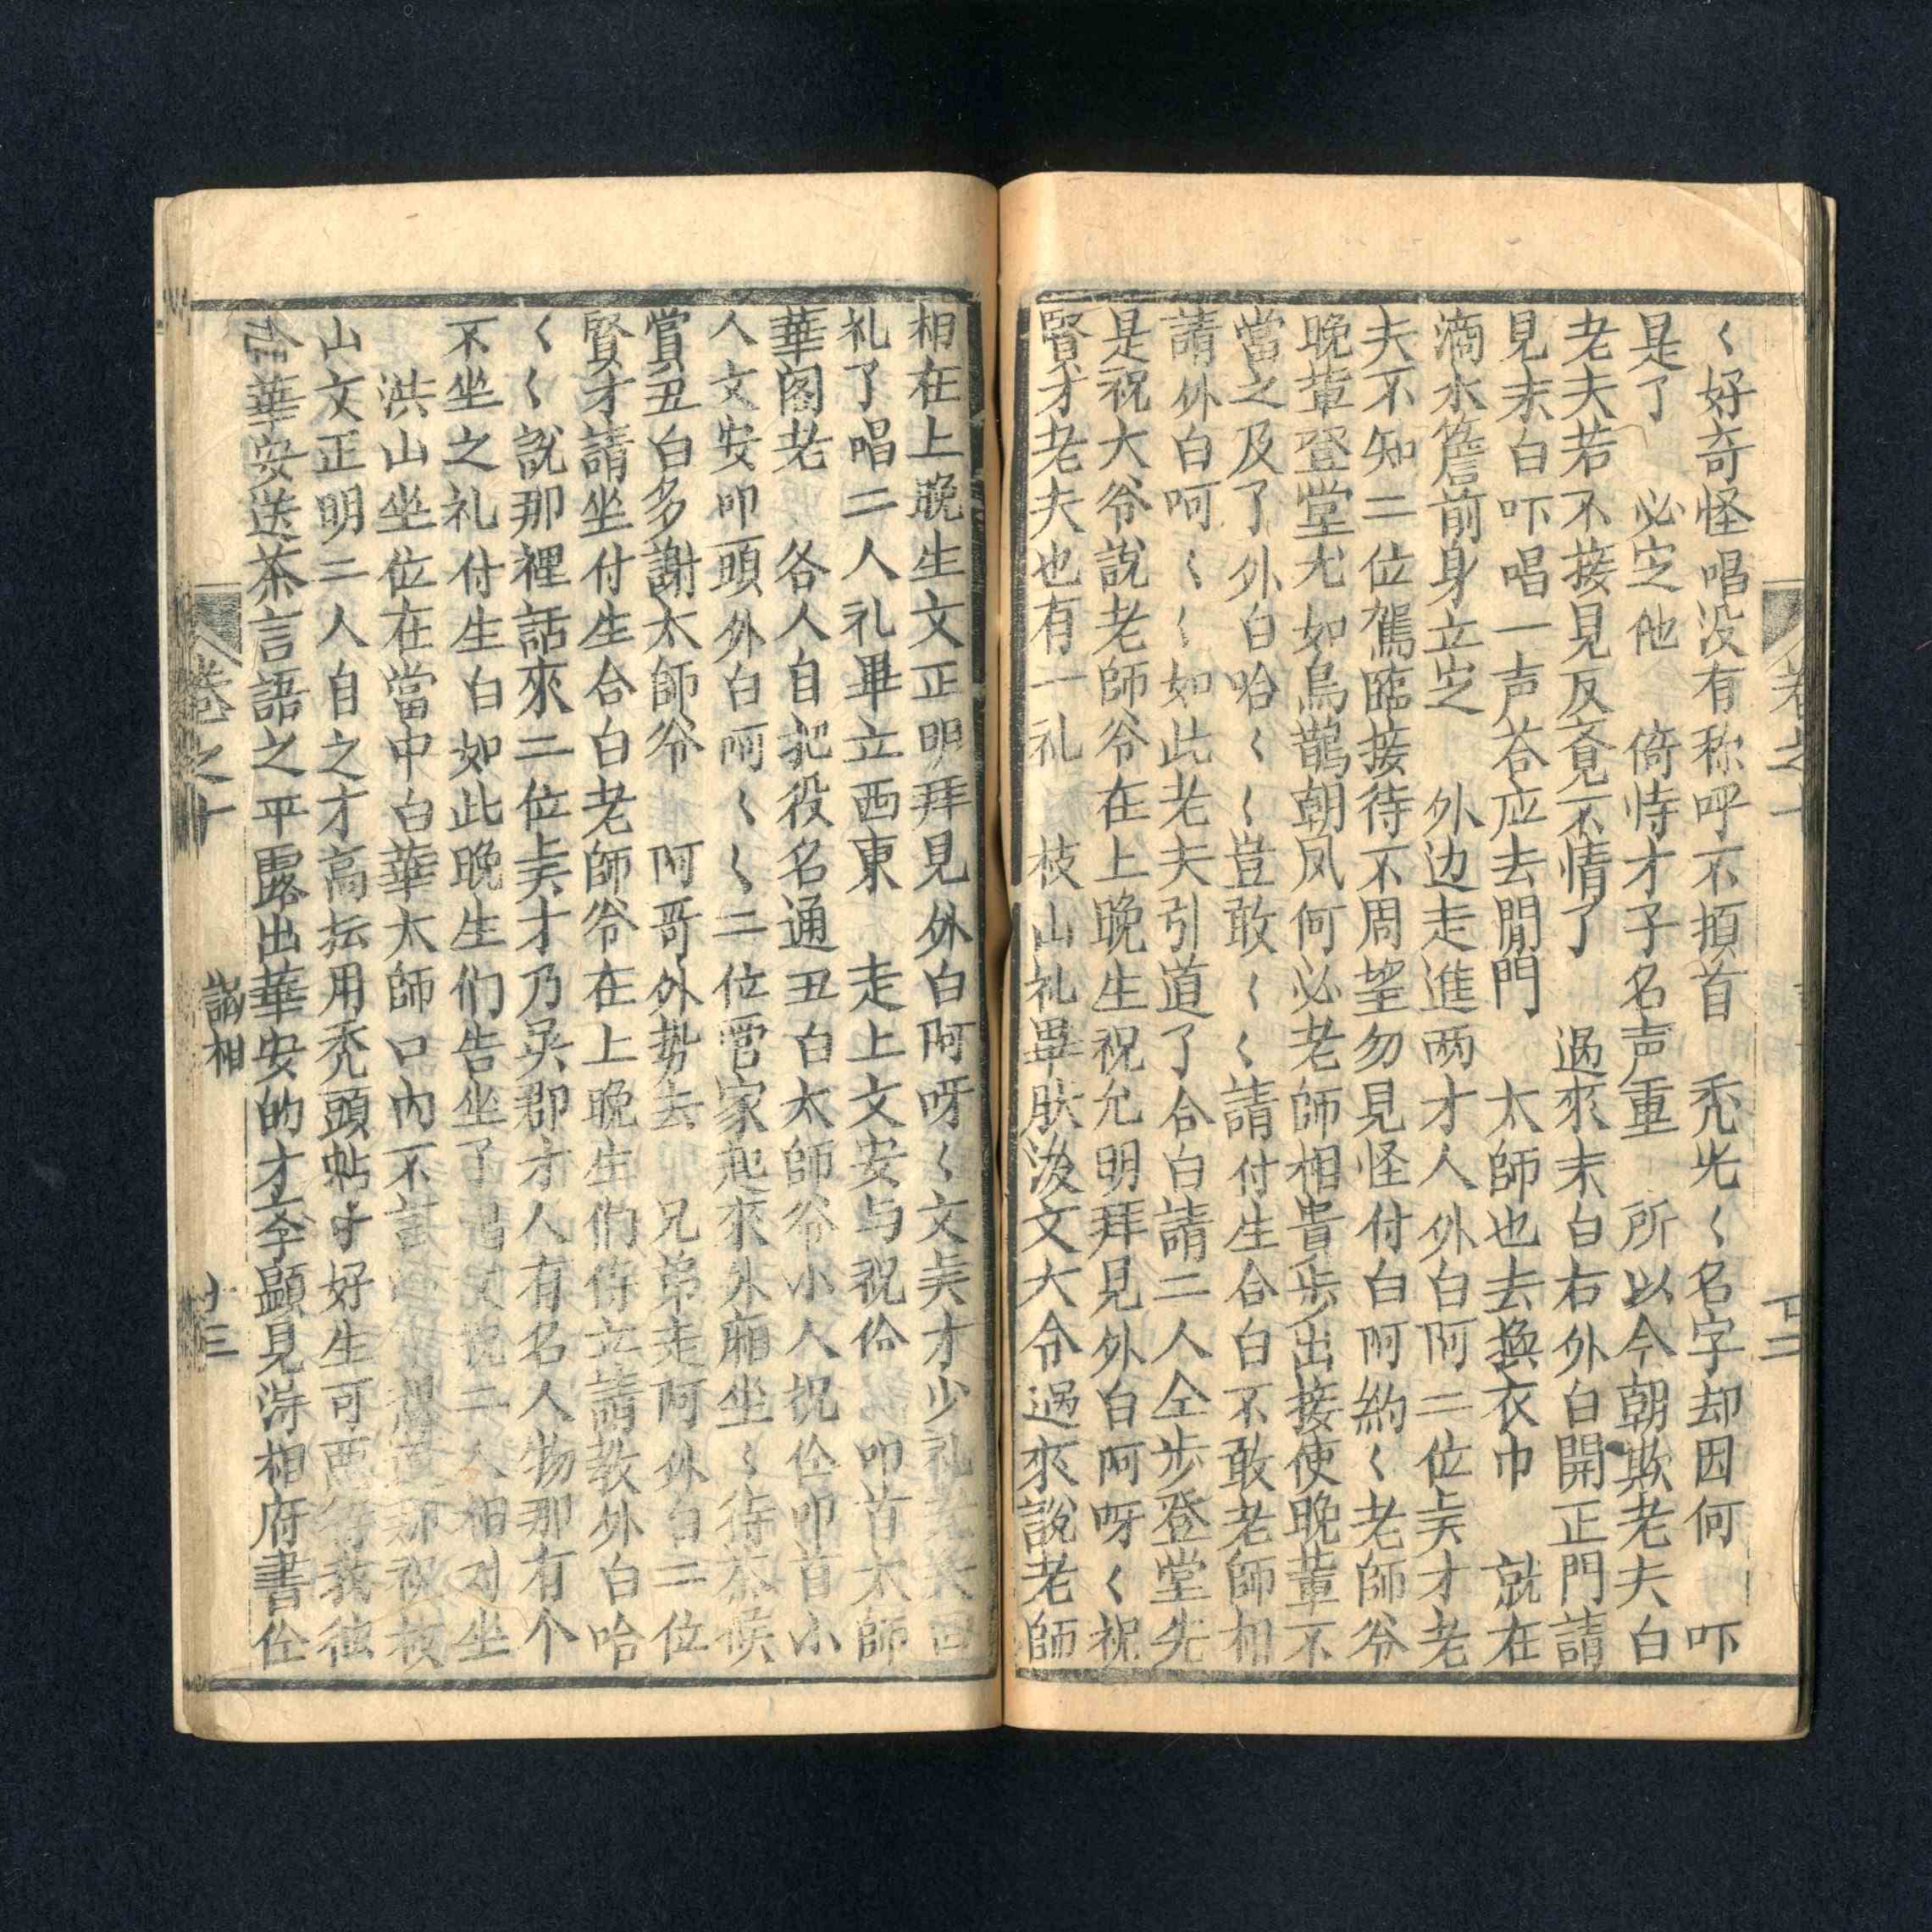 〱好奇怪唱没有称呼不頓首　禿光〱名字却因何　吓
是了　必定他　倚恃才子名声重　所以今朝欺老夫白
老夫若不接見反覺不情了　過來末白右外白開正門請
見末白吓唱一声荅应去開門　太師也去換衣巾　就在
滴水簷前身立定　外边走進两才人外白阿二位矣才老
夫不知二位駕臨接待不周望勿見怪付白阿約〱老師爷
晚輩登堂尤如烏鵲朝凤何必老師相貴步出接使晚輩不
當之及了外白哈〱〱豈敢〱〱請付生合白不敢老師相
請外白呵〱〱如此老夫引道了合白請二人仝步登堂先
是祝大爷說老師爷在上晚生祝允明拜見外白阿呀〱祝
賢才老夫也有一礼　枝山礼畢㱾後文大令過來說老師
相在上晚生文正明拜見外白阿呀〱文矣才少礼
礼了唱二人礼畢立西東　走上文安与祝伱　叩首太師
華阁老　各人自把役名通丑白太師爷小人祝伱叩首小
人文安叩頭外白呵〱〱二位管家起來外廂坐〱待茶候
賞丑白多謝太師爷　阿哥外势去　兄弟走阿外白二位
賢才請坐付生合白老師爷在上晚生们侍立請教外白哈
〱〱說那裡話來二位矣才乃吴郡才人有名人物那有个
不坐之礼付生白如此晚生们告坐了唱文祝二人相对坐
洪山坐位在當中白華太師口內不言　想道那祝枝
山文正明二人自之才高抎用禿頭帖寸好生可惡待我徒
叫華安送茶言語之平露出華安的才李顕見淂相府書伱
卷之十
誥相
十三
卷之十
十二